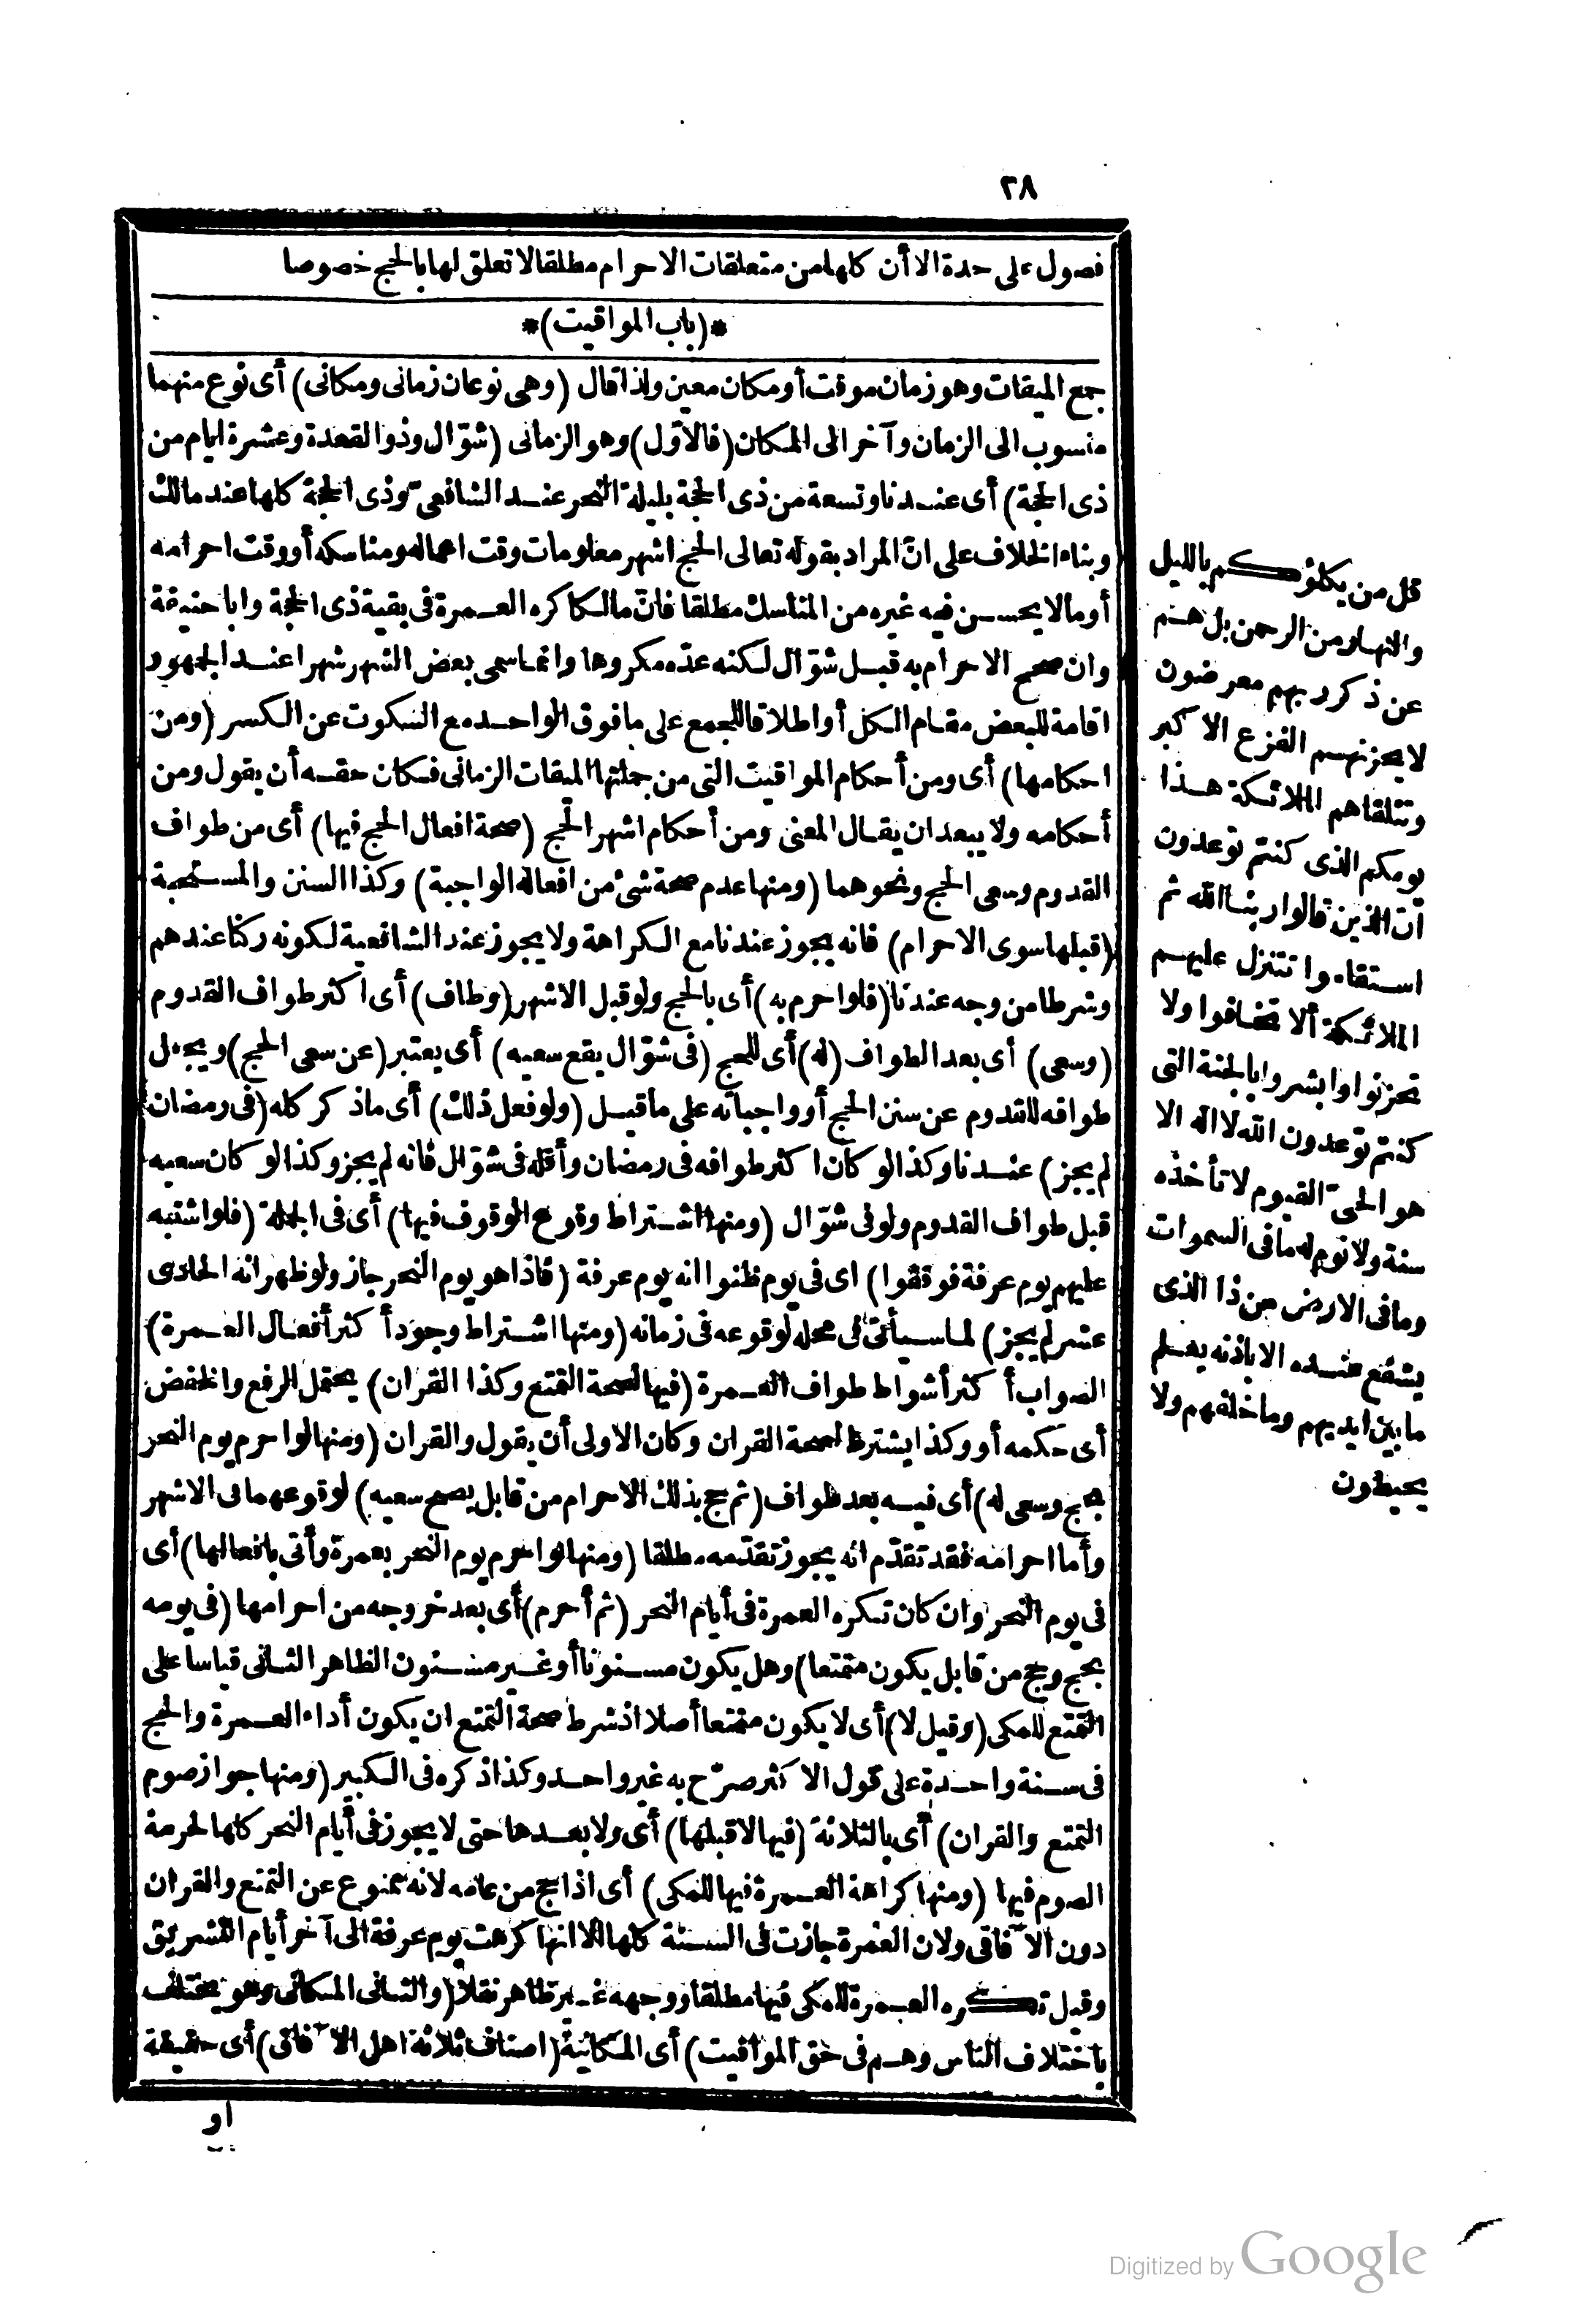 ٢٨
فصول على حدة الا أن كلها من متعلقات الاحرام مطلقا لا تعلق لها بالحج خصوصا
*(باب المواقيت)*
جمع الميقات وهو زمان موقت أو مكان معين ولذا قال (وهى نوعان زمانى ومكانى) أى نوع منهما
منسوب الى الزمان وآخر الى المكان (فالاوّل) وهو الزمانى (شوّال وذو القعدة وعشرة ايام من
ذى الحجة) أى عندنا وتسعة من ذى الحجة بليلة النحر عند الشافعىّ وذى الحجة كلها عند مالك
وبناء الخلاف على انّ المراد بقوله تعالى الحج اشهر معلومات وقت اعماله ومناسكه أو وقت احرامه
أو مالا يحسن فيه غيره من المناسك مطلقا فانّ مالكا كره العمرة فى بقية ذى الحجة وابا حنيفة
وان صحح الاحرام به قبل شوّال لكنه عدّه مكروها وانما سمى بعض الشهر شهرا عند الجمهور
اقامة للبعض مقام الكل أو اطلاقا للجمع على ما فوق الواحد مع السكوت عن الكسر (ومن
احكامها) أى ومن أحكام المواقيت التى من جملتها الميقات الزمانى فكان حقه أن يقول ومن
أحكامه ولا يبعد ان يقال المعنى ومن أحكام اشهر الحج (صحة افعال الحج فيها) أى من طواف
القدوم وسعى الحج ونحوهما (ومنها عدم صحة شئ من افعاله الواجبة) وكذا السنن والمستحبة
(قبلها سوى الاحرام) فانه يجوز عندنا مع الكراهة ولا يجوز عند الشافعية لكونه ركنا عندهم
وشرطا من وجه عندنا (فلو احرم به) أى بالحج ولو قبل الاشهر (وطاف) أى اكثر طواف القدوم
(وسعى) أى بعد الطواف (له) أى للحج (فى شوّال يقع سعيه) أى يعتبر (عن سعى الحج) ويجعل
طوافه للقدوم عن سنن الحج أو واجباته على ما قيل (ولو فعل ذلك) أى ما ذكر كله (فى رمضان
لم يجز) عندنا وكذا لو كان اكثر طوافه فى رمضان وأقله فى شوّال فانه لم يجز وكذا لو كان سعيه
قبل طواف القدوم ولو فى شوّال (ومنها اشتراط وقوع الوقوف فيها) أى فى الجملة (فلو اشتبه
عليهم يوم عرفة فوقفوا) اى فى يوم ظنوا انه يوم عرفة (فاذا هو يوم النحر جاز ولو ظهر انه الحادى
عشر لم يجز) لما سيأتى فى محله لوقوعه فى زمانه (ومنها اشتراط وجود أكثر أفعال العمرة)
الصواب أكثر أشواط طواف العمرة (فيها لصحة التمتع وكذا القران) يحتمل الرفع والخفض
أى حكمه أو وكذا يشترط لصحة القران وكان الاولى أن يقول والقران (ومنها لو احرم يوم النحر
بحج وسعى له) أى فيه بعد طواف (ثم حج بذلك الاحرام من قابل يصح سعيه) لوقوعهما فى الاشهر
وأما احرامه فقد تقدّم انه يجوز تقدّمه مطلقا (ومنها لو احرم يوم النحر بعمرة وأتى بافعالها) أى
فى يوم النحر وان كان تكره العمرة فى أيام النحر (ثم أحرم) أى بعد خروجه من احرامها (فى يومه
بحج وحج من قابل يكون متمتعا) وهل يكون مسنونا أو غير مسنون الظاهر الثانى قياسا على
التمتع للمكى (وقيل لا) أى لا يكون متمتعا أصلا اذ شرط صحة التمتع ان يكون أداء العمرة والحج
فى سنة واحدة على قول الاكثر صرّح به غير واحد وكذا ذكره فى الكبير (ومنها جواز صوم
التمتع والقران) أى بالثلاثة (فيها لا قبلها) أى ولا بعدها حتى لا يجوز فى أيام النحر كلها لحرمة
الصوم فيها (ومنها كراهة العمرة فيها للمكى) أى اذا حج من عامه لانه ممنوع عن التمتع والقران
دون الآفاقى ولان العمرة جازت فى السنة كلها الا انها كرهت يوم عرفة الى آخر أيام التشريق
وقيل تكره العمرة للمكى فيها مطلقا ووجهه غير ظاهر نقلا (والثانى المكانى وهو يختلف
باختلاف الناس وهم فى حق المواقيت) أى المكانية (اصناف ثلاثة اهل الآفاق) أى حقيقة
او
قل من يكلؤكم بالليل
والنهار من الرحمن بل هم
عن ذكر ربهم معرضون
لا يحزنهم الفزع الاكبر
وتتلقاهم الملائكة هذا
يومكم الذى كنتم توعدون
انّ الذين قالوا ربنا الله ثم
استقاموا تتنزل عليهم
الملائكة ألا تخافوا ولا
تحزنوا وابشروا بالجنة التى
كنتم توعدون الله لا اله الا
هو الحىّ القيوم لا تأخذه
سنة ولا نوم له ما فى السموات
وما فى الارض من ذا الذى
يشفع عنده الا باذنه يعلم
ما بين ايديهم وما خلفهم ولا
يحيطون
Digitized by Google